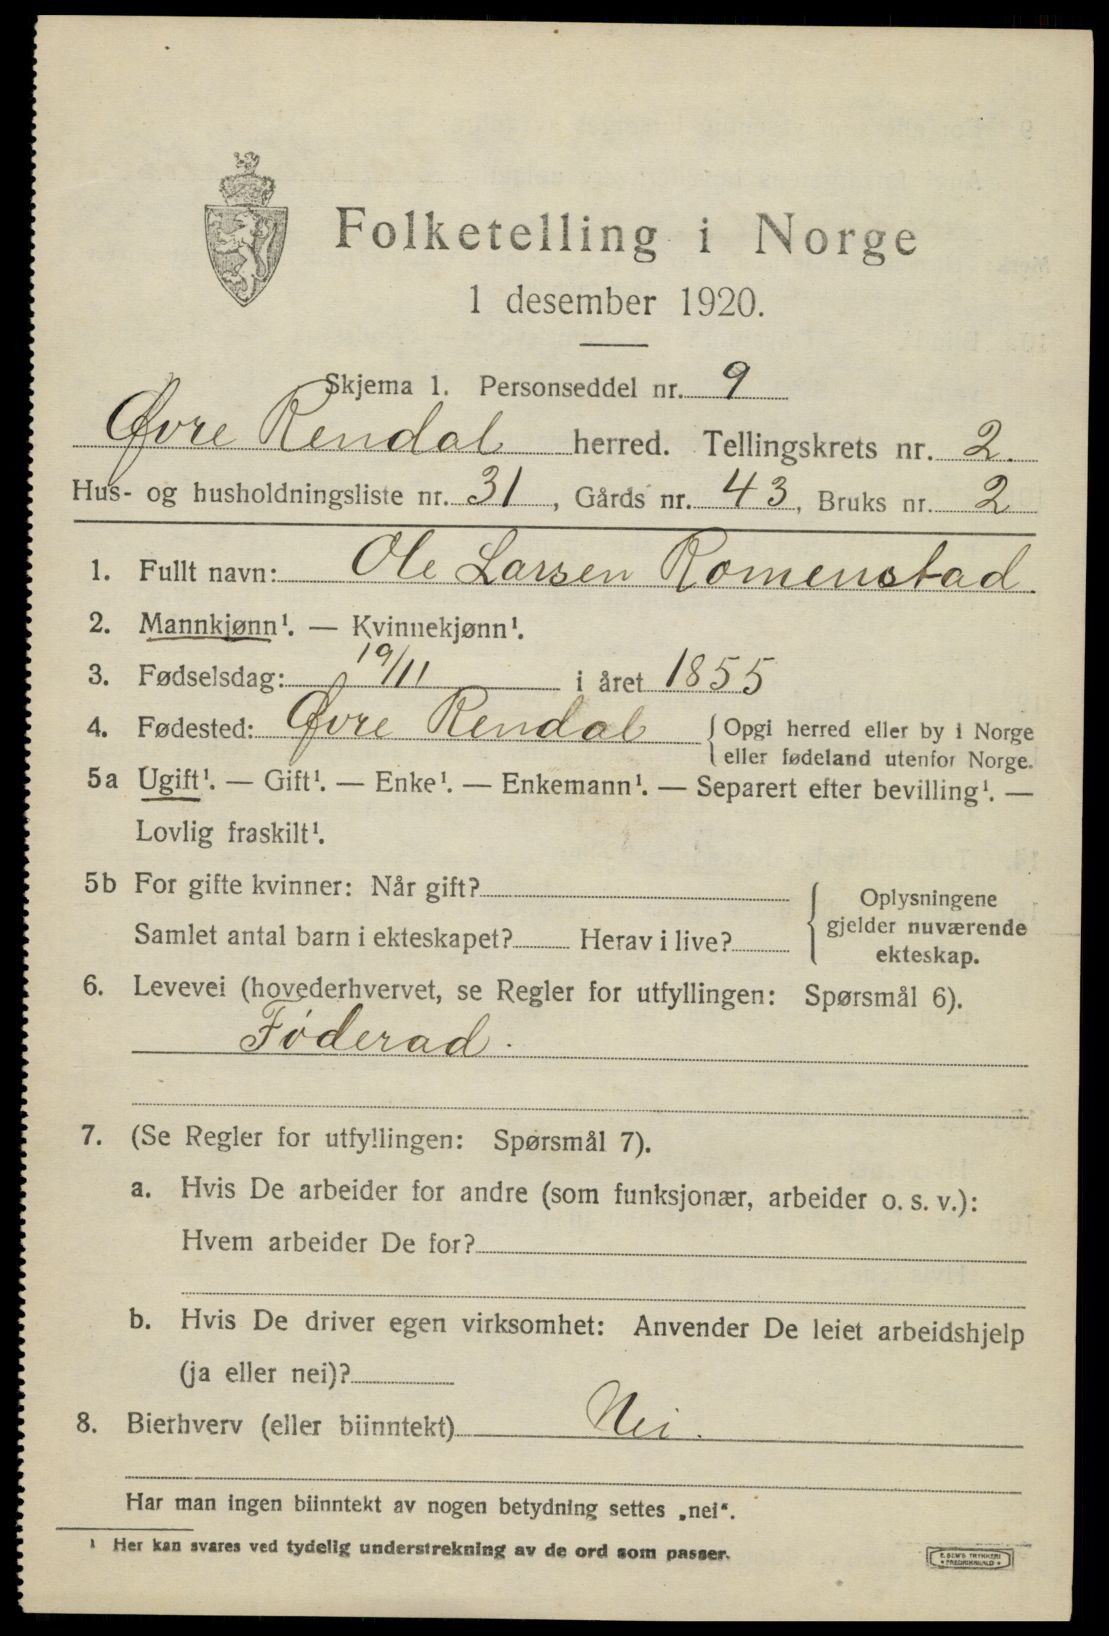 Folketelling i Norge
1 desember 1920.
Skjema 1. Personseddel nr. 9
Øvre Rendal herred. Tellingskrets nr. 2.
Hus- og husholdningsliste nr. 31, Gårds nr. 43, Bruks nr. 2
1. Fullt navn: Ole Larsen Romenstad
2. Mannkjønn¹. — Kvinnekjønn¹.
3. Fødselsdag: 19/11 i året 1855
4. Fødested: Øvre Rendal { Opgi herred eller by i Norge
eller fødeland utenfor Norge.
5a Ugift¹. — Gift¹. — Enke¹. — Enkemann¹. — Separert efter bevilling¹. —
Lovlig fraskilt¹.
5b For gifte kvinner: Når gift?
Samlet antal barn i ekteskapet? Herav i live?
{ Oplysningene
gjelder nuværende
ekteskap.
6. Levevei (hovederhvervet, se Regler for utfyllingen: Spørsmål 6).
Föderad.
7. (Se Regler for utfyllingen: Spørsmål 7).
a. Hvis De arbeider for andre (som funksjonær, arbeider o. s. v.):
Hvem arbeider De for?
b. Hvis De driver egen virksomhet: Anvender De leiet arbeidshjelp
(ja eller nei)?
8. Bierhverv (eller biinntekt) Nei.
Har man ingen biinntekt av nogen betydning settes „nei“.
¹ Her kan svares ved tydelig understrekning av de ord som passer.
E. SEM'S TRYKKERI
FREDRIKSHALD